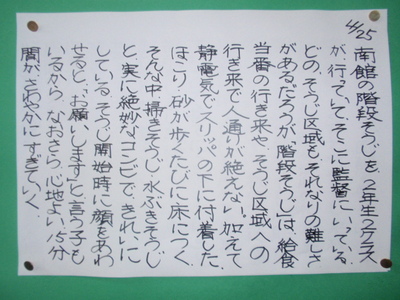 4/25
南館の階段そうじを、2年生2クラス
が、行っていて、そこに監督にいっている。
どの、そうじ区域も、それなりの難しさ
があるだろうが、「階段そうじ」は、給食
当番の行き来や、そうじ区域への
行き来で、人通りが絶えない。加えて
静電気でスリッパの下に付着した、
ほこり・砂が歩くたびに床につく。
そんな中、掃きそうじ・水ぶきそうじ
と、実に絶妙なコンビで、きれいに
している。そうじ開始時に、顔をあわ
せると、「お願いします」と言う子も
いるから、なおさら、心地よい。15分
間がさわやかにすぎていく。